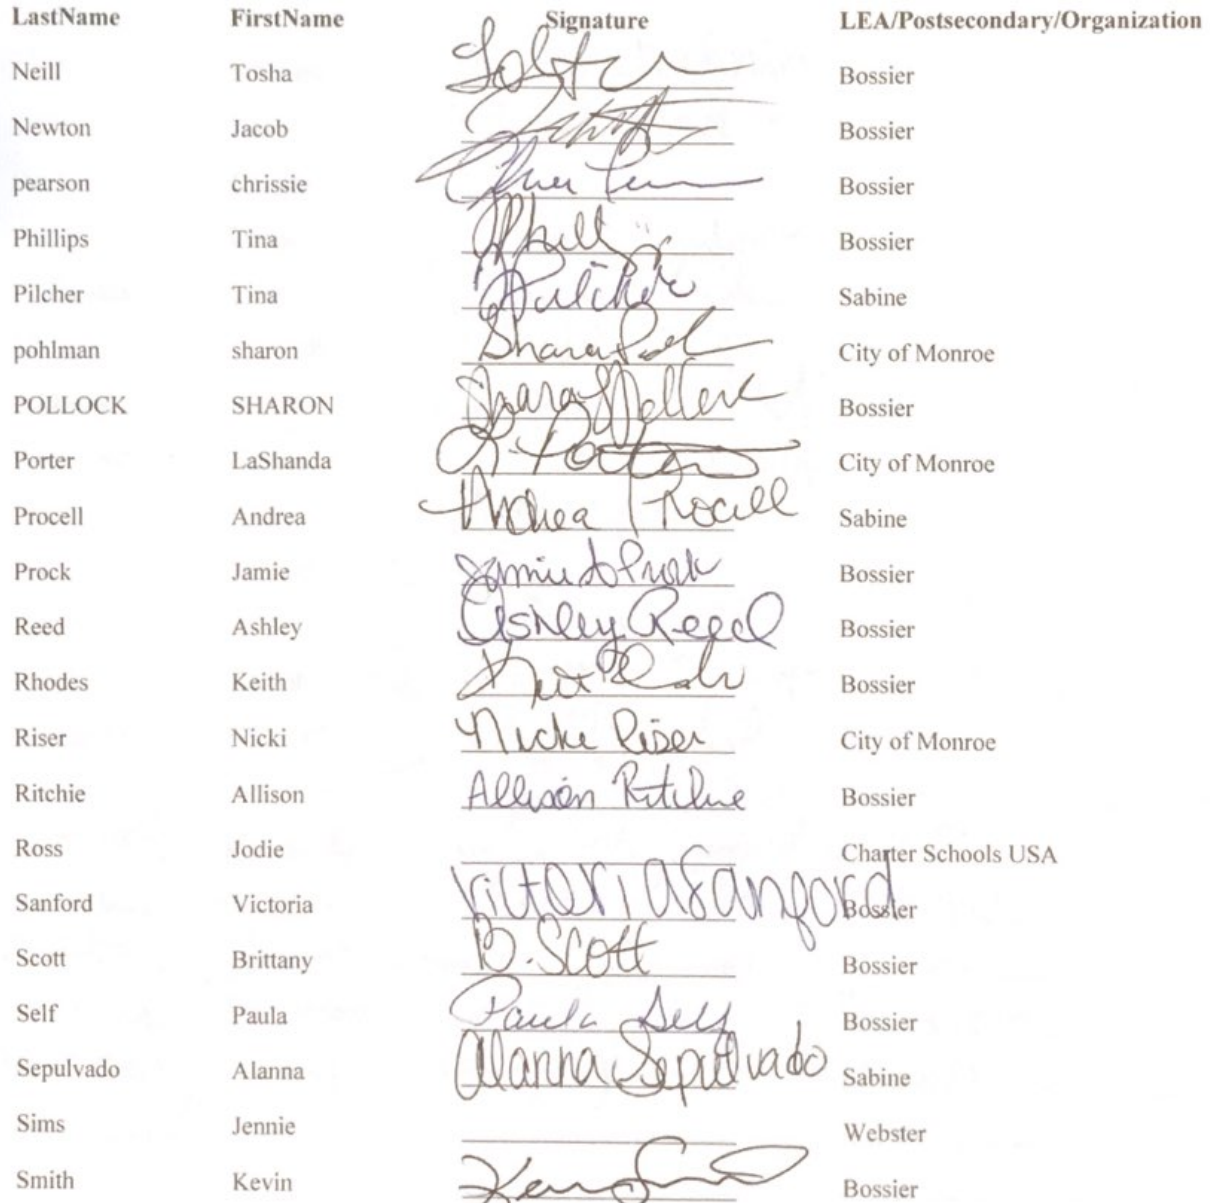 LastName FirstName Signature LEA/Postsecondary/Organization
Neill Tosha Bossier
Newton Jacob Bossier
pearson chrissie Bossier
Phillips Tina Bossier
Pilcher Tina Pilcher Sabine
pohlman sharon City of Monroe
POLLOCK SHARON Bossier
Porter LaShanda L. Porter City of Monroe
Procell Andrea Andrea Procell Sabine
Prock Jamie Bossier
Reed Ashley Ashley Reed Bossier
Rhodes Keith Bossier
Riser Nicki Nicki Riser City of Monroe
Ritchie Allison Allison Ritchie Bossier
Ross Jodie Charter Schools USA
Sanford Victoria Victoria Sanford Bossier
Scott Brittany B. Scott Bossier
Self Paula Paula Self Bossier
Sepulvado Alanna Alanna Sepulvado Sabine
Sims Jennie Webster
Smith Kevin Bossier